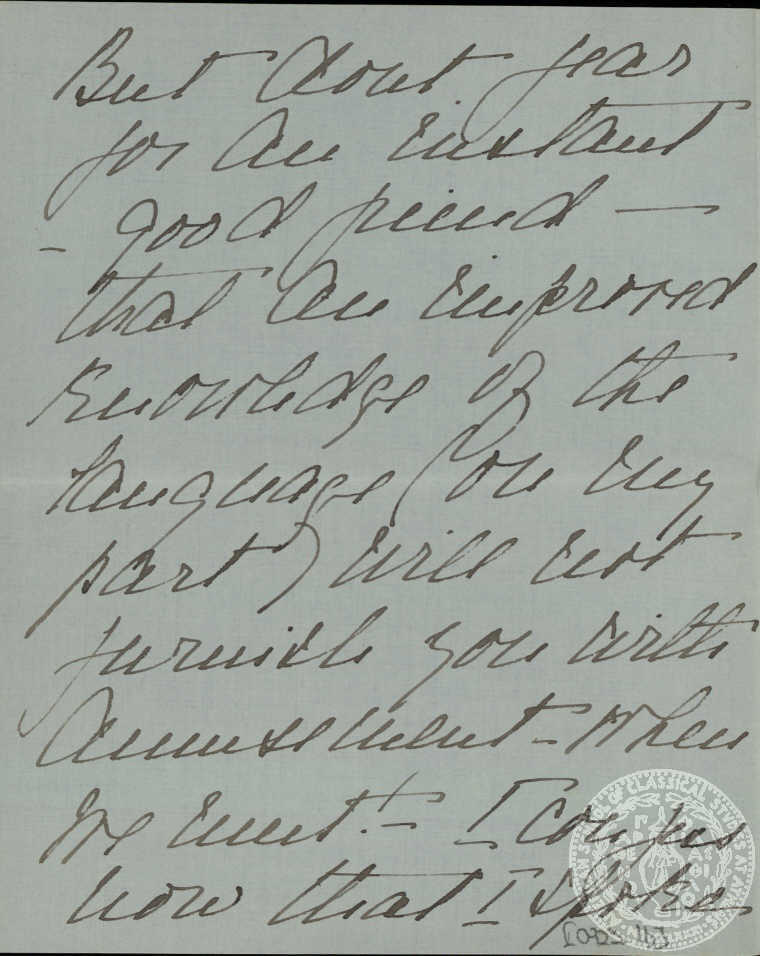 But dont fear
for an instant
- good friend -
that an improved
knowledge of the
language (on my
part) will not
furnish you with
amusement - when
we meet! - I confess
now that I spoke